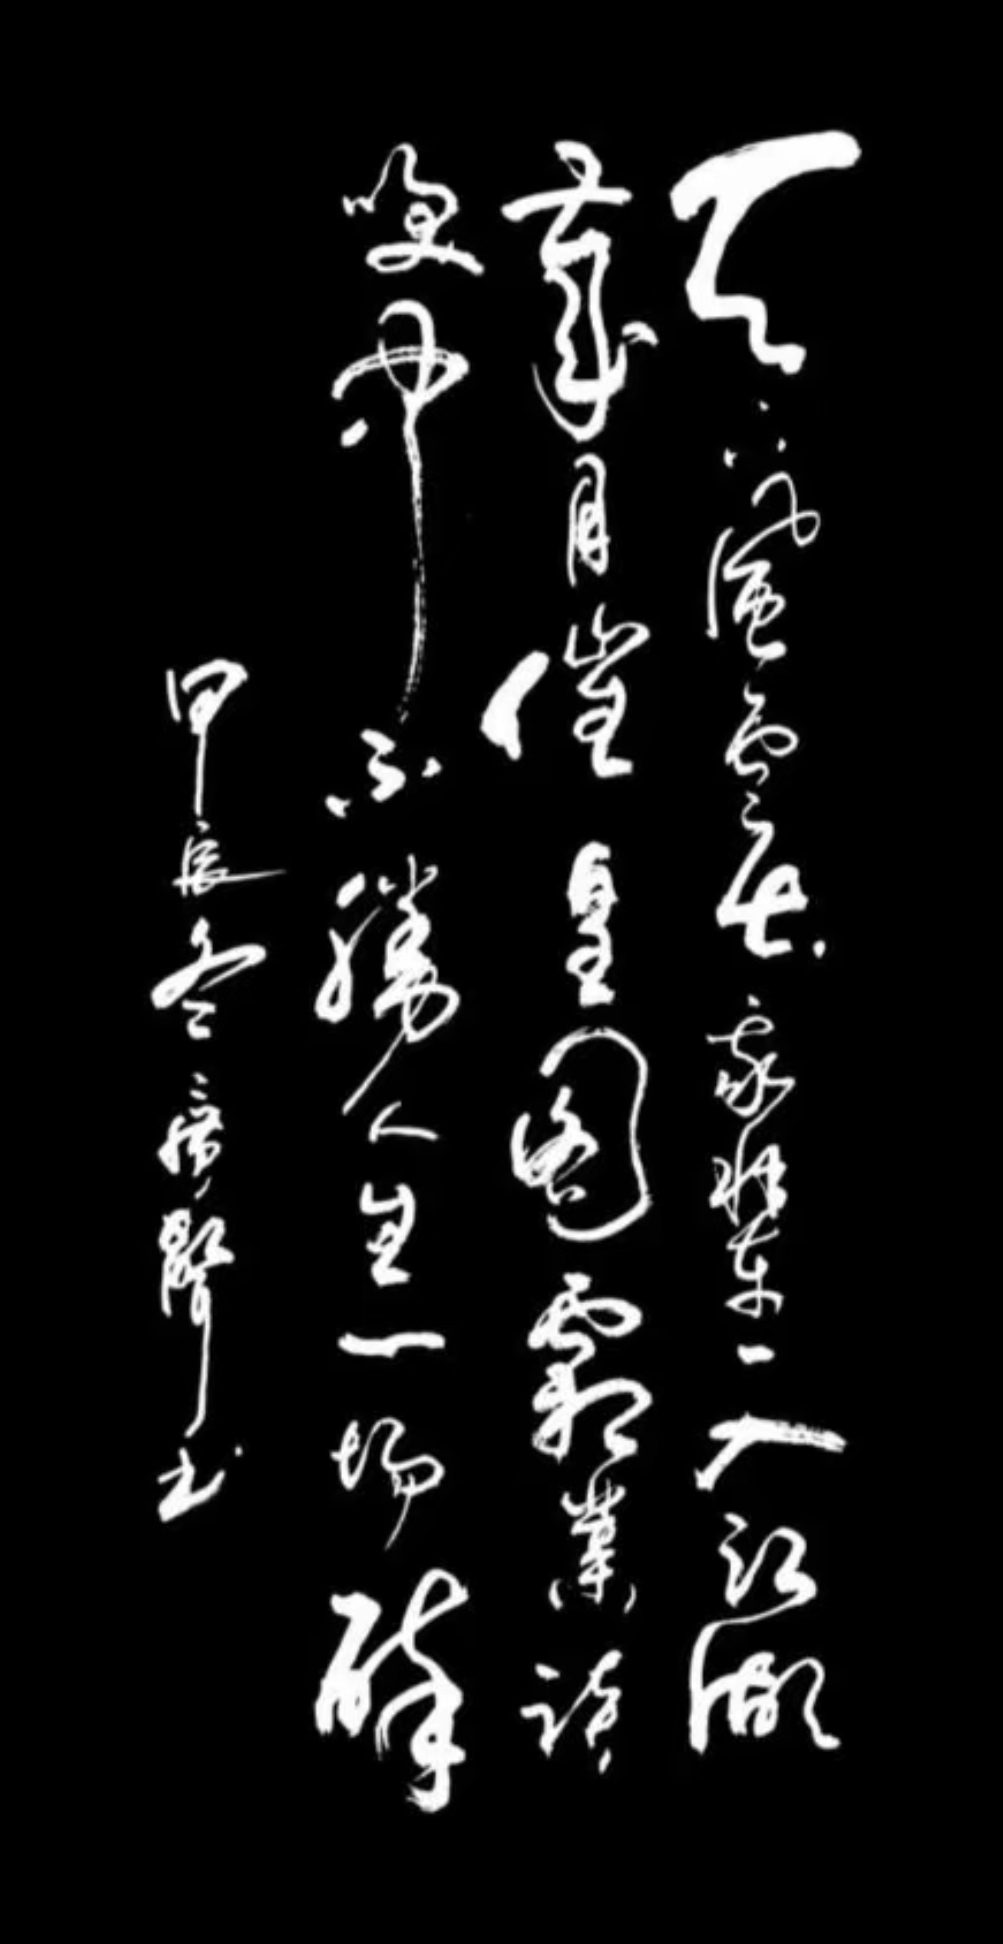 天下風雲出我輩一入江湖
歲月催皇圖霸業談
笑中不勝人生一場醉
甲辰冬聲書